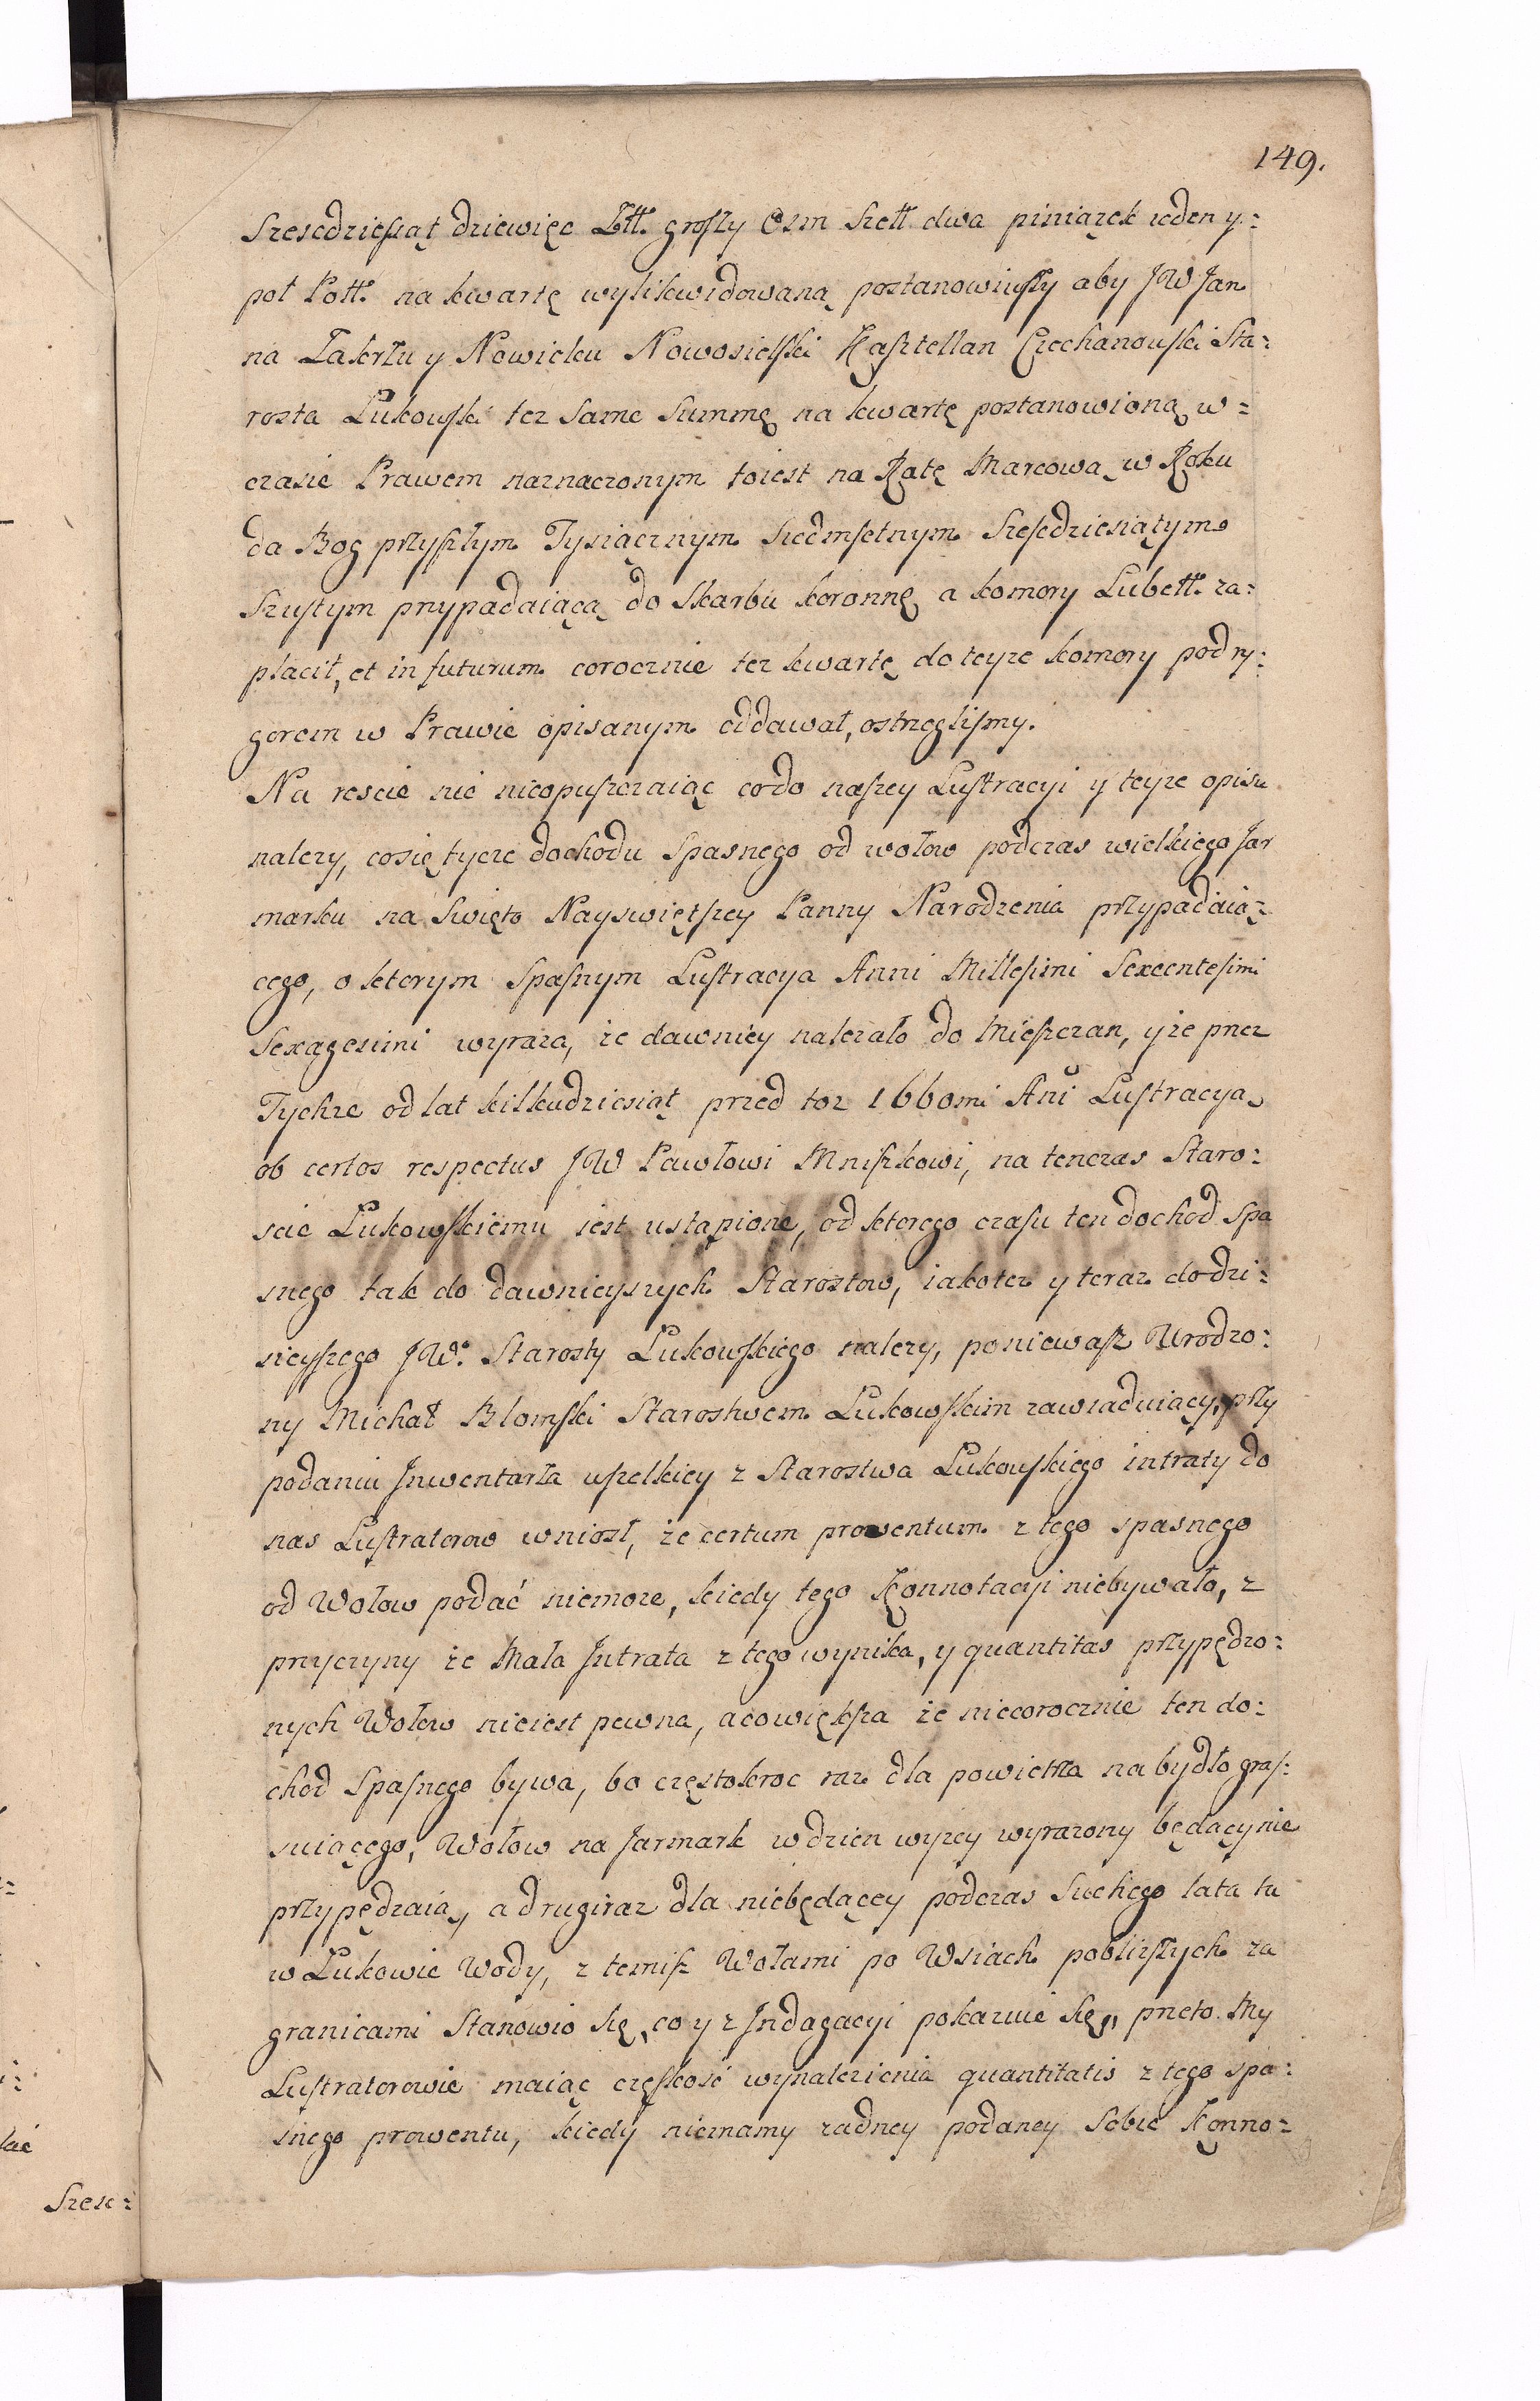 149.
Szescdziesiąt dziewięc Złł. groszy Osm Szell dwa piniązek ieden y:
poł Potł. na kwartę wylikwidowaną postanowiwszy aby JW Jan
na Zakrzu y Nowicku Nowosielski Kasztellan Czechanowski Sta:
rosta Łukowski tez Same Summę na kwartę postanowioną w:
czasie Prawem naznaczonym toiest na Ratę Marcową w Roku
da Bog przyszłym Tysiącznym Siedmsetnym Szescdziesiątym
Szustym przypadaiącą do Skarbu koronnę a komory Lubell. za:
płacił, et in futurum corocznie tez kwartę do teyze komory pod ry:
gorem w Prawie opisanym oddawał, ostrzeglismy.
Na rescie nic nieopuszczaiąc co do naszey Lustracyi y teyze opisu
nalezy, co się tycze dochodu Spasnego od wołow podczas wielkiego Jar
marku na Swięto Nayswiętszey Panny Narodzenia przypadaią:
cego, o ktorym Spasnym Lustracya Anni Millesimi Sexcentesimi
Sexagesimi wyraza, że dawniey nalezało do Mieszczan, y że przez
Tychze od lat kilkudziesiąt przed toz 1660mi Ani Lustracya
ob certos respectus JW Pawłowi Mniszkowi, na tenczas Staro:
scie Łukowskiemu iest ustąpione, od ktorego czasu ten dochod Spa
snego tak do dawnieyszych Starostow, iako tez y teraz do dzi:
sieyszego JW. Starosty Łukowskiego nalezy, poniewasz Urodzo:
ny Michał Błomski Starostwem Łukowskim zawiaduiący, przy
podaniu Jnwentarza wszelkiey z Starostwa Łukowskiego intraty do
nas Lustratorow wniosł, że certum prowentum z tego spasnego
od Wołow podać niemoze, kiedy tego Konnotacyi niebywało, z
przyczyny że Mała Jntrata z tego wynika, y quantitas przypędzo:
nych Wołow nieiest pewna, a co większa że niecorocznie ten do:
chod Spasnego bywa, bo częstokroc raz dla powietrza na bydło gras:
suiącego, Wołow na Jarmark w dzien wyzey wyrazony będący nie
przypędzaią, a drugiraz dla niebędącey podczas Suchego lata tu
w Łukowie Wody, z temisz Wołami po Wsiach poblizszych za
granicami Stanowio się, co y z Jndagacyi pokazuie się,, przeto My
Lustratorowie maiąc cięszkość wynalezienia quantitatis z tego spa:
snego prowentu, kiedy niemamy zadney podaney Sobie Konno:
Szesc: